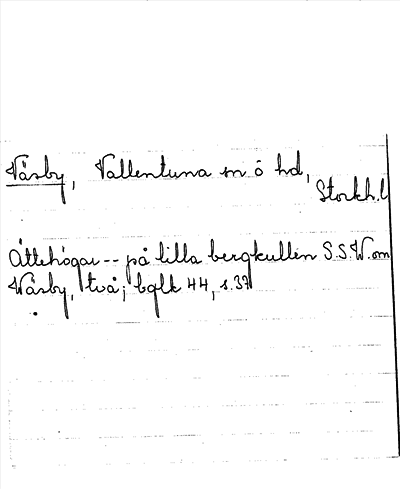 Väsby, Vallentuna sn o hd,
Stockh.l
Ättehögar -- på lilla bergkullen S.S.W. om
Väsby, två; bglk 44, s. 37